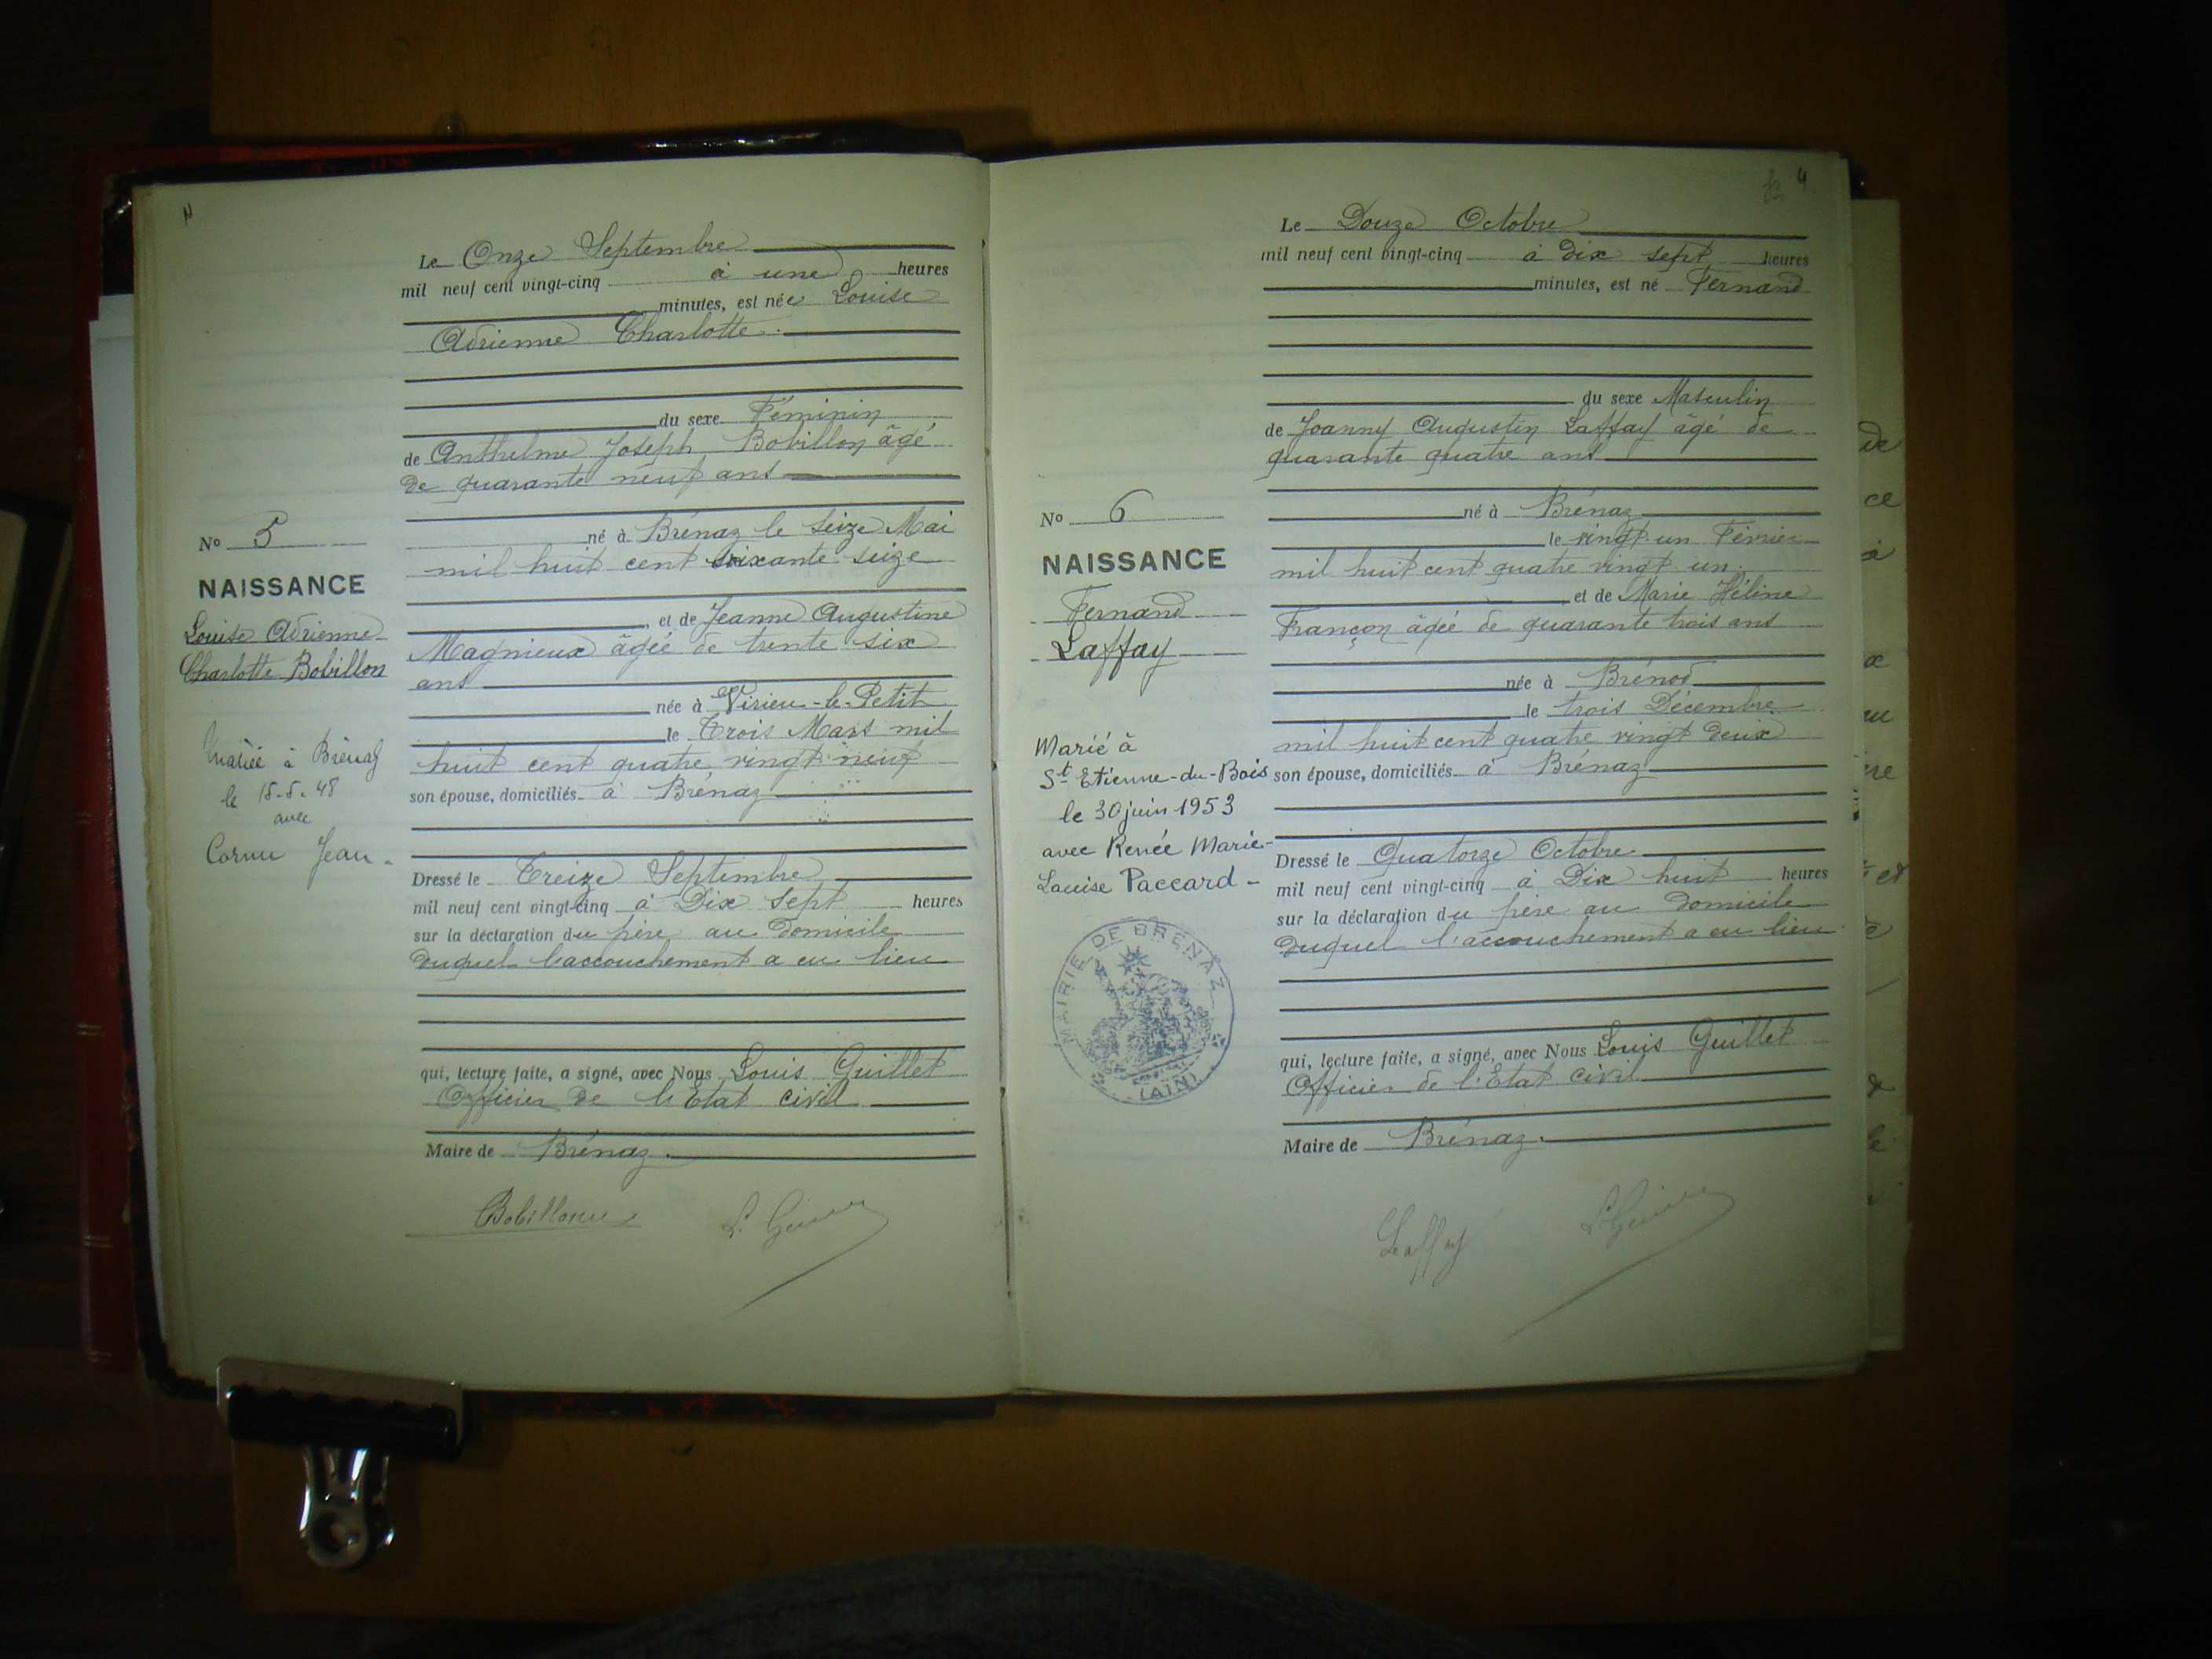 Le Onze Septembre
mil neuf cent vingt-cinq à une heures
minutes, est née Louise
Adrienne Charlotte.
du sexe Féminin
de Anthelme Joseph Bobillon âgé
de quarante neuf ans
né à Brénaz le seize Mai
mil huit cent soixante seize
et de Jeanne Augustine
Magnieux âgée de trente six
ans
née à Virieu-le-Petit
le Trois Mars mil
huit cent quatre vingt neuf
son épouse, domiciliés à Brénaz
Dressé le Treize Septembre
mil neuf cent vingt-cinq à Dix sept heures
sur la déclaration du père au domicile
duquel l'accouchement a eu lieu
qui, lecture faite, a signé, avec Nous Louis Guillet
Officier de l'Etat civil
Maire de Brénaz.
No 5
NAISSANCE
Louise Adrienne
Charlotte Bobillon
Mariée à Brénaz
le 18-8-48
avec
Cornu Jean
4
Le Douze Octobre
mil neuf cent vingt-cinq à Dix sept heures
minutes, est né Fernand
du sexe Masculin
de Joanny Augustin Laffay âgé de
quarante quatre ans
né à Brénaz
le vingt un Février
mil huit cent quatre vingt un.
et de Marie Hélène
Françon âgée de quarante trois ans
née à Brénod
le trois Décembre
mil huit cent quatre vingt deux
son épouse, domiciliés à Brénaz
Dressé le Quatorze Octobre
mil neuf cent vingt-cinq à Dix huit heures
sur la déclaration du père au domicile
duquel l'accouchement a eu lieu
qui, lecture faite, a signé, avec Nous Louis Guillet
Officier de l'Etat civil
Maire de Brénaz.
Laffay
No 6
NAISSANCE
Fernand
Laffay
Marié à
St Etienne-du-Bois
le 30 juin 1953
avec Renée Marie-
Louise Paccard -
MAIRIE DE BRENAZ
(AIN)